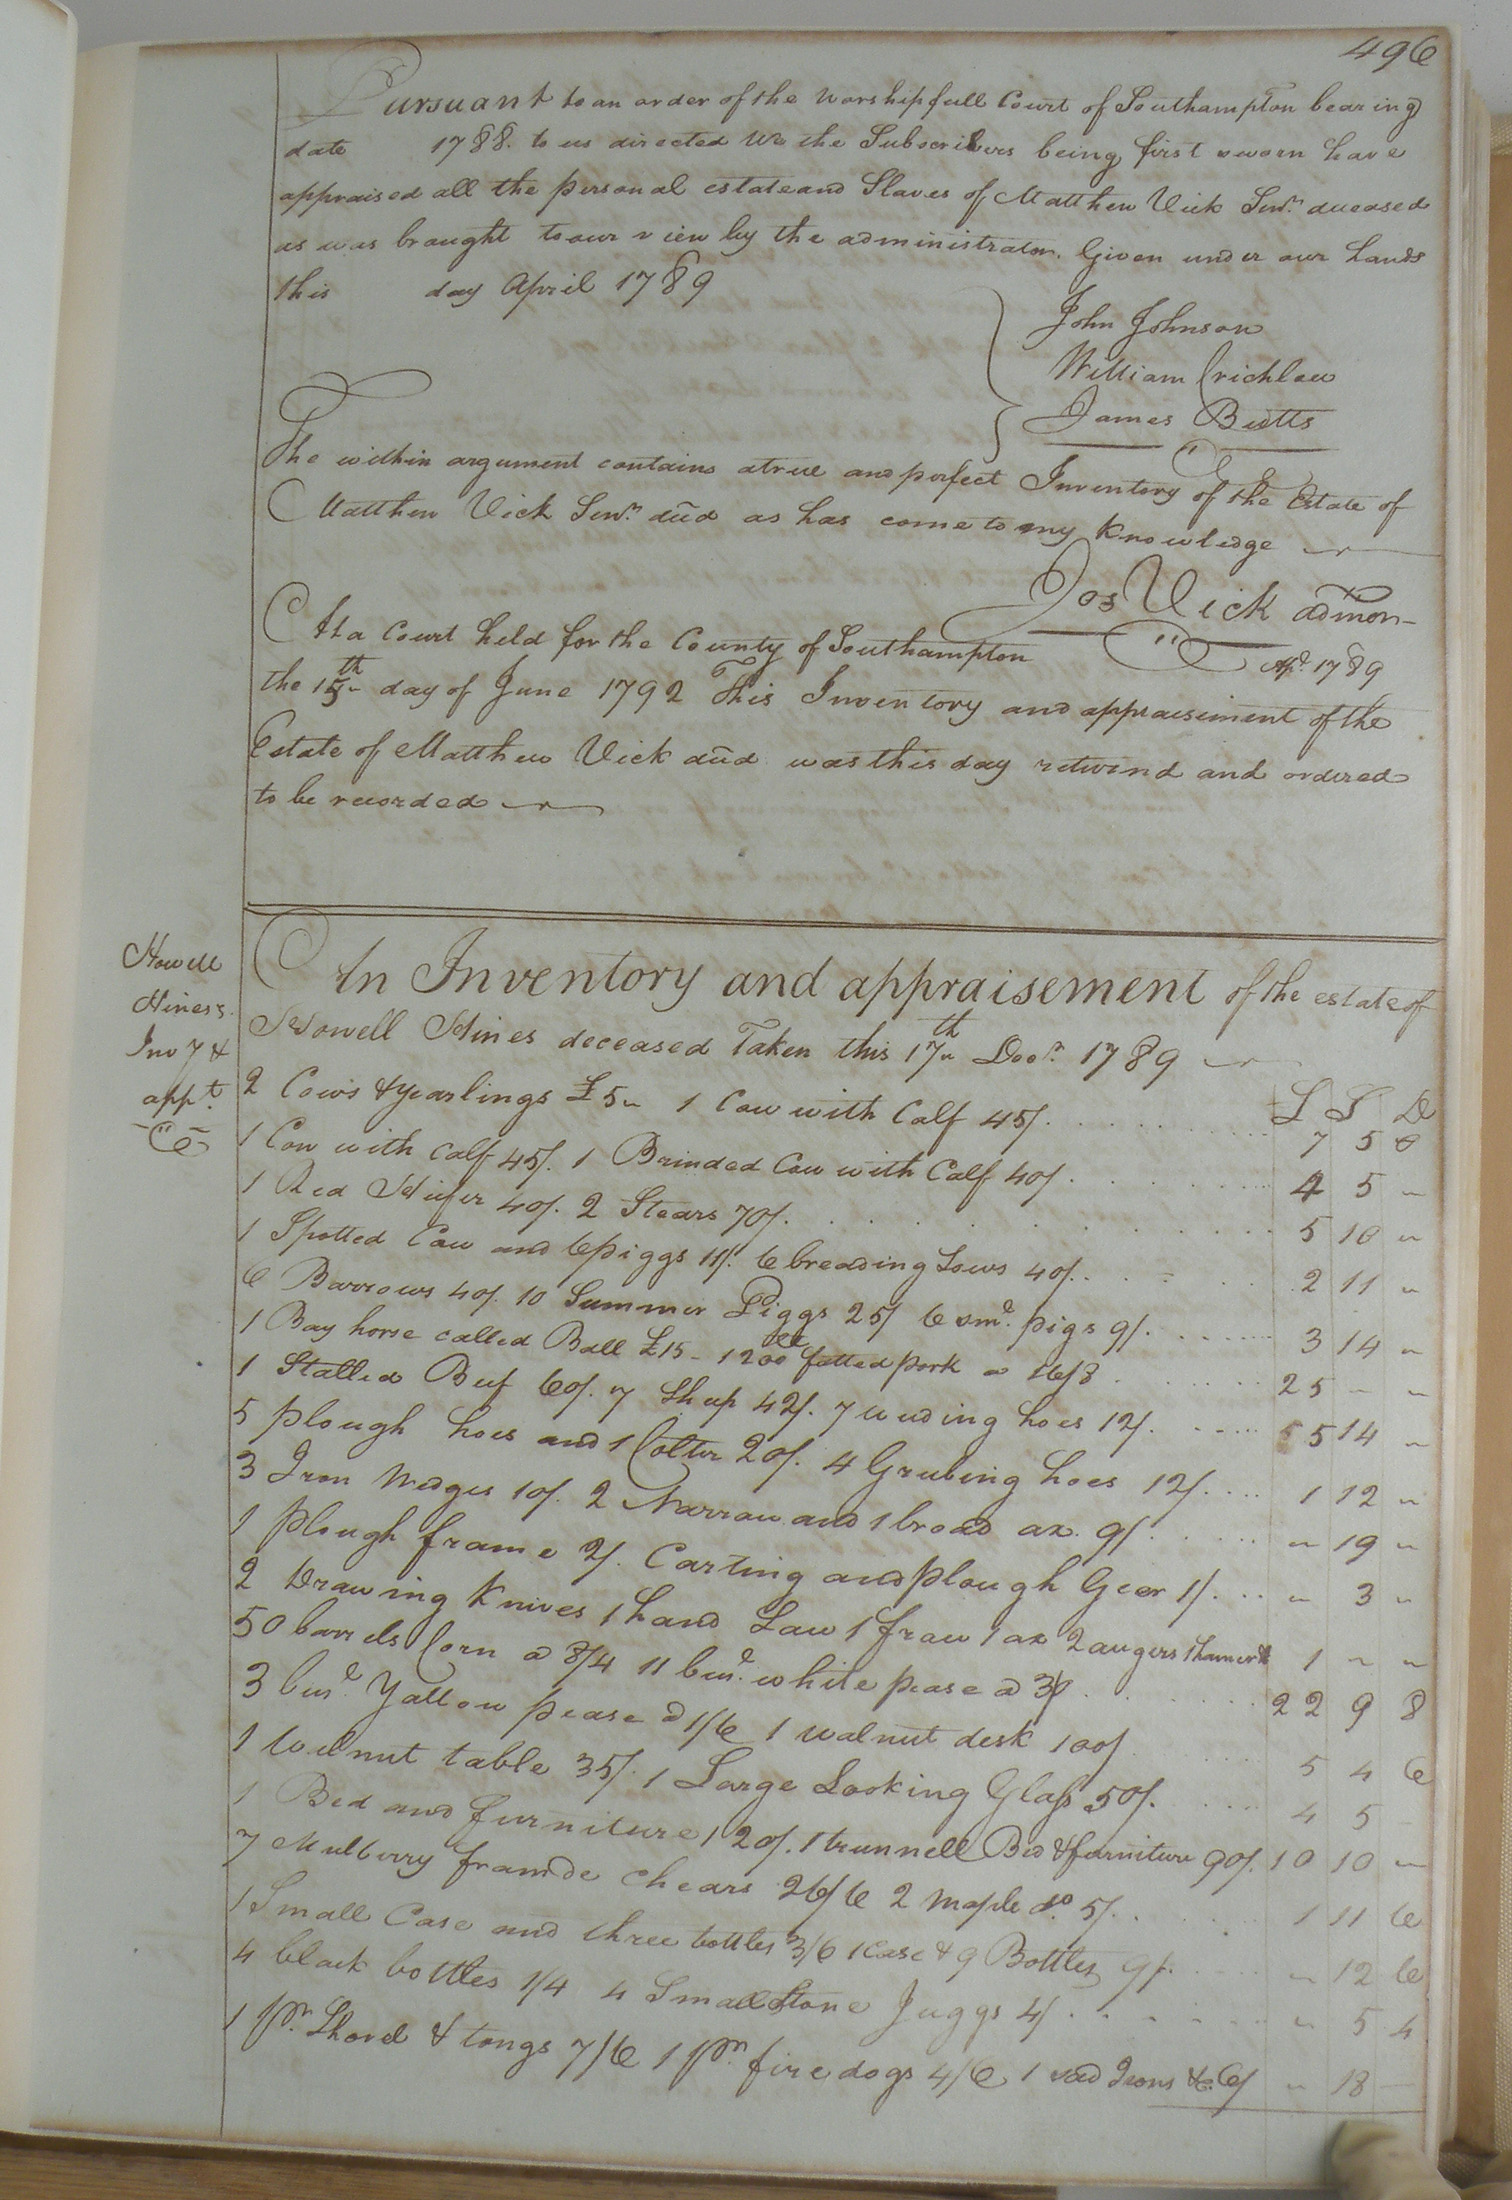 496
Pursuant to an order of the Worshipfull Court of Southampton bearing
date 1788. to us directed We the Subscribers being first sworn have
appraised all the personal estate and Slaves of Matthew Vick Senr. deceased
as was brought to our view by the administrator. Given under our hands
this day April 1789
John Johnson
William Crichlow
James Butts
The within argument contains a true and perfect Inventory of the Estate of
Matthew Vick Senr. decd as has come to my knowledge
Jos Vick admon
Apl. 1789
At a Court held for the County of Southampton
the 15th day of June 1792 This Inventory and appraisement of the
Estate of Matthew Vick decd was this day returnd and ordered
to be recorded
Howell
Hiness
Invy &
appt.
An Inventory and appraisement of the estate of
Howell Hines deceased Taken this 17th Decr. 1789
L S D
2 Cows & yearlings £5 " 1 Cow with Calf 45/. 7 5 0
1 Cow with Calf 45/. 1 Brinded Cow with Calf 40/. 4 5 "
1 Red Heifer 40/. 2 Stears 70/. 5 10 "
1 Spotted Cow and 6 piggs 11/. 6 breading Sows 40/. 2 11 "
6 Barrows 40/. 10 Summer Piggs 25/ 6 sml. pigs 9/. 3 14 "
1 Bay horse called Ball £15 - 1200lt fatted pork @ 16/8 25 " "
1 Stalled Beef 60/. 7 Sheep 42/. 7 weeding hoes 12/. 5 14 "
5 plough hoes and 1 Colter 20/. 4 Grubing hoes 12/. 1 12 "
3 Iron Wedges 10/. 2 Narrow and 1 broad ax. 9/. " 19 "
1 plough frame 2/. Carting and plough Geer 1/. " 3 "
2 Drawing Knives 1 hand Saw 1 fraw 1 ax 2 augers 1 hamer & 1 " "
50 barrels Corn @ 8/4 11 bus. white pease @ 3/ 22 9 8
3 bus. Yallow pease @ 1/6 1 walnut desk 100/ 5 4 6
1 Walnut table 35/. 1 Large Looking Glass 50/. 4 5
1 Bed and furniture 120/. 1 trunnell Bed & furniture 90/. 10 10 "
7 Mulberry framde chears 26/6 2 maple do. 5/. 1 11 6
1 Small Case and three bottles 3/6 1 Case & 9 Bottles 9/. " 12 6
4 black bottles 1/4 4 Small Stone Juggs 4/. " 5 4
1 pr. Shovel & tongs 7/6 1 pr. fire dogs 4/6 1 sad Irons &c. 6/ " 18 "